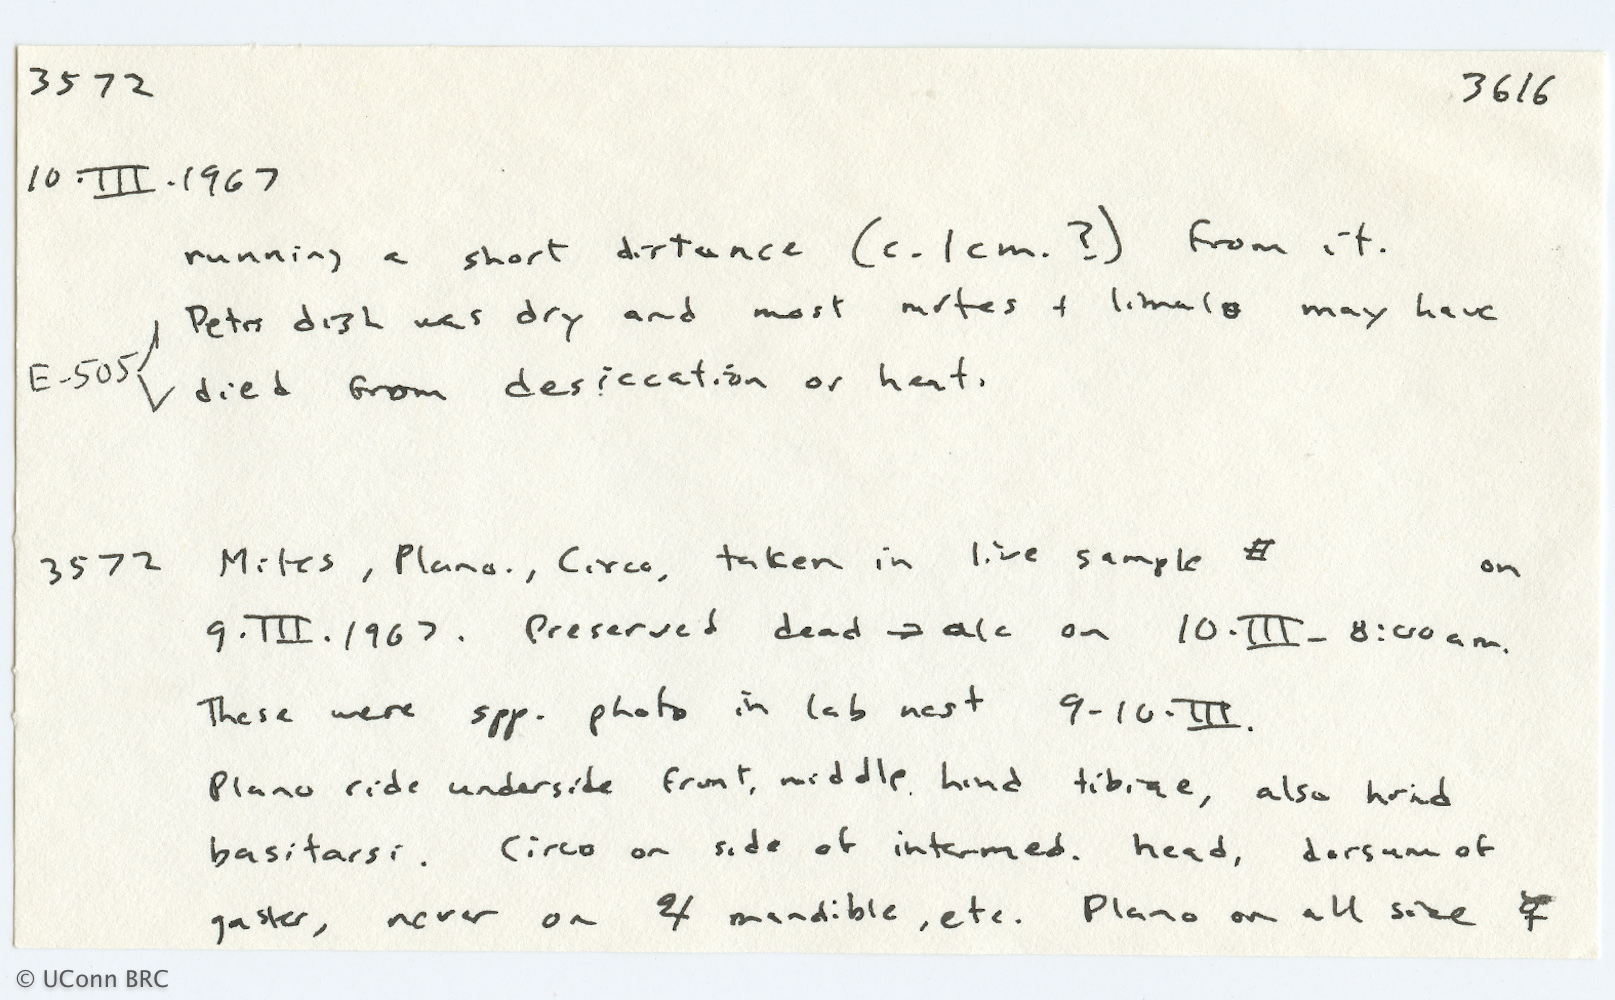 3572 3616
10.III.1967
running a short distance (c. 1cm. ?) from it.
Petri dish was dry and most mites + limulo may have
E-505
died from desiccation or heat.
3572 Mites, Plano., Circo, taken in live sample # on
9.III.1967. Preserved dead → alc on 10.III - 8:00 am.
These were spp. photo in lab nest 9-10.III.
Plano ride underside front, middle, hind tibiae, also hind
basitarsi. Circo on side of intermed. head, dorsum of
gaster, never on ♃ mandible, etc. Plano on all size
© UConn BRC